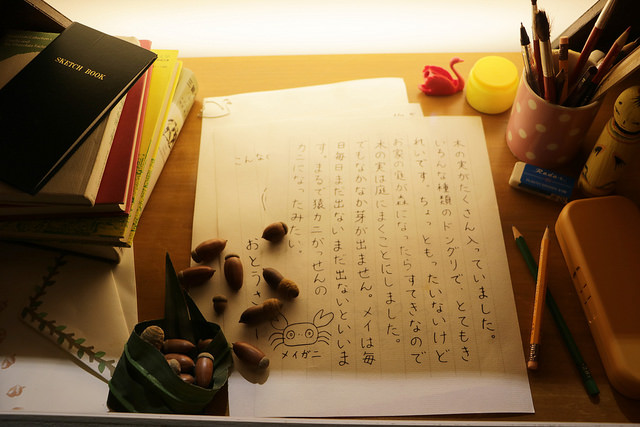 SKETCH BOOK
木の実がたくさん入っていました。
いろんな種類のドングリで、とてもき
れいです。ちょっともったいないけど
お家の庭が森になったらすてきなので
木の実は庭にまくことにしました。
でもなかなか芽が出ません。メイは毎
日毎日まだ出ないまだ出ないといいま
す。まるで猿カニがっせんの
カニになったみたい。
おとうさ
こんな
メイガニ
Radar